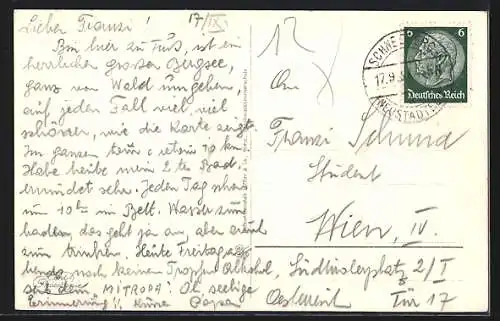 Lieber Franzi! 17/IX.
Bin hier zu Fuss, ist ein
herrlicher grosser Bergsee,
ganz von Wald umgeben,
auf jeden Fall viel, viel
schöner, wie die Karte zeigt.
Im ganzen 10 km
Habe heute mein 2tes Bad
sehr. Jeden Tag schon
um 10h im Bett. Wasser zum
baden, das geht ja an, aber auch
zum trinken. Heute Freitag
noch keinen Tropfen Alkohol,
seit dem "MITROPA". Oh seelige
Erinnerung!! Küsse Papa
12
An
Franzi Schmid
Student
Wien, IV.
Südtirolerplatz 2/I
Oesterreich Tür 17
6 6
Deutsches Reich
17.9.3
NEUSTADT